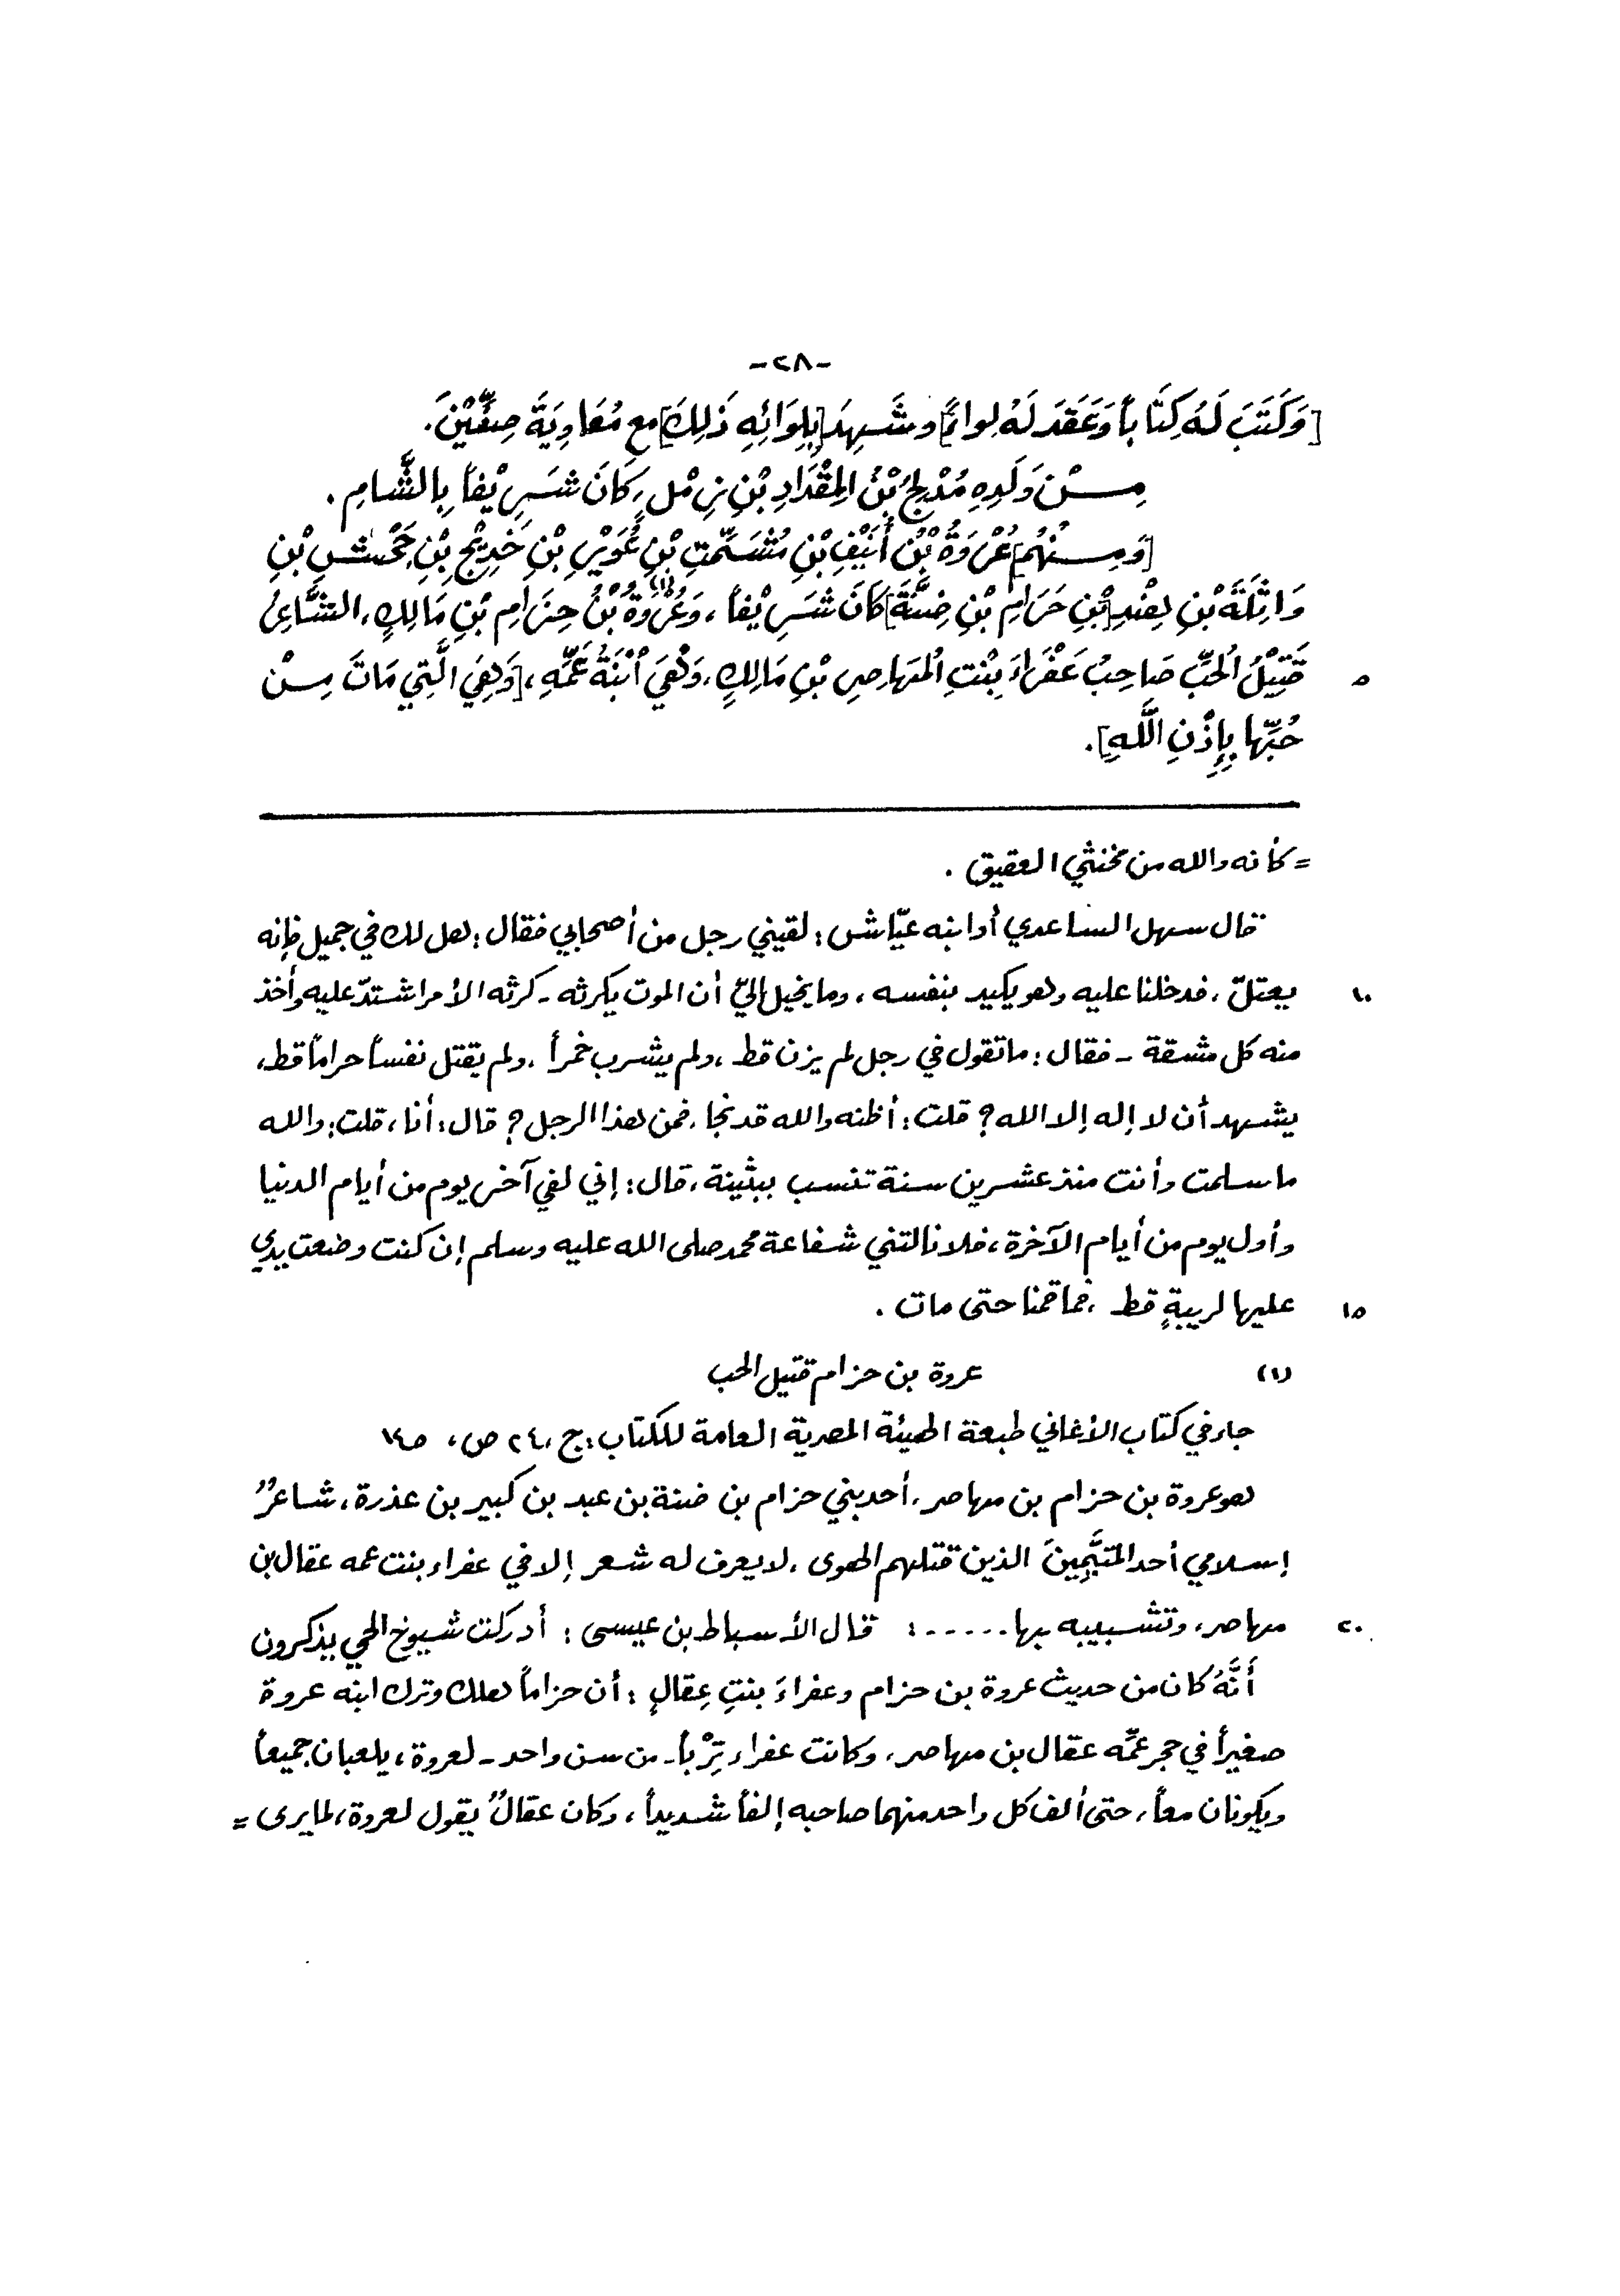 -٢٨-
[وَكَتَبَ لَهُ كِتَاباً وَعَقَدَ لَهُ لِواءً] وشَهِدَ [بِلِوَائِهِ ذَلِكَ] مع مُعَاوِيَةَ صِفِّيْنَ.
مِنْ وَلَدِهِ مُدْلِجُ بْنُ المِقْدَادِ بْنِ زِمْلٍ، كَانَ شَرِيْفاً بِالشَّامِ.
[وَمِنْهُم] عُرْوَةُ بْنُ أُنَيْفِ بْنِ مُشَمِّتِ بْنِ عُوَيْرِ بْنِ خَدِيْجِ بْنِ جَحْشِ بْنِ
وَاثِلَةَ بْنِ هِنْدِ [بْنِ حَرَامِ بْنِ ضِنَّةَ] كَانَ شَرِيْفاً، وَعُرْوَةُ(١) بْنُ حِزَامِ بْنِ مَالِكٍ، الشَّاعِرُ
٥ قَتِيْلُ الحُبِّ صَاحِبُ عَفْرَاءَ بِنْتِ المُهَاصِرِ بْنِ مَالِكٍ، وَهْيَ ابْنَةُ عَمِّهِ، [وَهِيَ الَّتِي مَاتَ مِنْ
حُبِّها بِإِذْنِ اللَّهِ].
= كأنه والله من مخنثي العقيق.
قال سهل الساعدي أو ابنه عيّاش: لقيني رجل من أصحابي فقال: هل لك في جميل فإنه
١٠ يعتلّ، فدخلنا عليه وهو يكيد بنفسه، وما يخيل إليّ أن الموت يكرثه - كرثه الأمر اشتدّ عليه وأخذ
منه كل مشقة - فقال: ما تقول في رجل لم يزن قط، ولم يشرب خمراً، ولم يقتل نفساً حراماً قط،
يشهد أن لا إله إلا الله؟ قلت: أظنه والله قد نجا، فمن هذا الرجل؟ قال: أنا، قلت: والله
ما سلمت وأنت منذ عشرين سنة تنسب ببثينة، قال: إني لفي آخر يوم من أيام الدنيا
وأول يوم من أيام الآخرة، فلا نالتني شفاعة محمد صلى الله عليه وسلم إن كنت وضعت يدي
١٥ عليها لريبةٍ قط، فما قمنا حتى مات.
(١) عروة بن حزام قتيل الحب
جاء في كتاب الأغاني طبعة الهيئة المصرية العامة للكتاب: ج، ٢٤ ص، ١٤٥
هو عروة بن حزام بن مهاصر، أحد بني حزام بن ضنة بن عبد بن كبير بن عذرة، شاعرٌ
إسلامي أحد المتيَّمِينَ الذين قتلهم الهوى، لا يعرف له شعر إلا في عفراء بنت عمه عقال بن
٢٠ مهاصر، وتشبيبه بها......: قال الأسباط بن عيسى: أدركت شيوخ الحي يذكرون
أَنَّهُ كان من حديث عروة بن حزام وعفراءَ بنتِ عِقالٍ: أن حزاماً هلك وترك ابنه عروة
صغيراً في حجر عمِّه عقال بن مهاصر، وكانت عفراء تِرْباً- من سن واحد - لعروة، يلعبان جميعاً
ويكونان معاً، حتى ألف كل واحد منهما صاحبه إلفاً شديداً، وكان عقالٌ يقول لعروة، لما يرى =